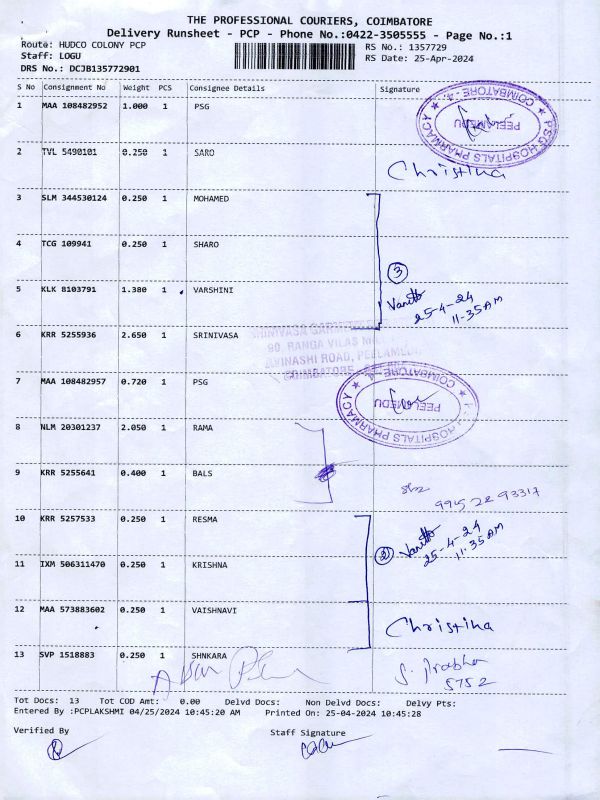 THE PROFESSIONAL COURIERS, COIMBATORE
Delivery Runsheet - PCP - Phone No.:0422-3505555 - Page No.:1
Route: HUDCO COLONY PCP
RS No.: 1357729
Staff: LOGU
RS Date: 25-Apr-2024
DRS No.: DCJB135772901
S No Consignment No Weight PCS Consignee Details Signature
1 MAA 108482952 1.000 1 PSG
PSG HOSPITALS PHARMACY
PEELMEDU
COIMBATORE - 4.
2 TVL 5490101 0.250 1 SARO
Christina
3 SLM 344530124 0.250 1 MOHAMED
4 TCG 109941 0.250 1 SHARO
3
5 KLK 8103791 1.380 1 VARSHINI
25-4-24
11-35AM
6 KRR 5255936 2.650 1 SRINIVASA
SRINIVASA
90, RANGA VILAS
AVINASHI ROAD, PEELAMEDU
COIMBATORE
7 MAA 108482957 0.720 1 PSG
HOSPITALS PHARMACY
PEELMEDU
COIMBATORE - 4.
8 NLM 20301237 2.050 1 RAMA
9 KRR 5255641 0.400 1 BALS
10 KRR 5257533 0.250 1 RESMA
2
25-4-24
11-35AM
11 IXM 506311470 0.250 1 KRISHNA
12 MAA 573883602 0.250 1 VAISHNAVI
Christina
13 SVP 1518883 0.250 1 SHNKARA
S. Prabha
5752
Tot Docs: 13 Tot COD Amt: 0.00 Delvd Docs: Non Delvd Docs: Delvy Pts:
Entered By :PCPLAKSHMI 04/25/2024 10:45:20 AM Printed On: 25-04-2024 10:45:28
Verified By Staff Signature